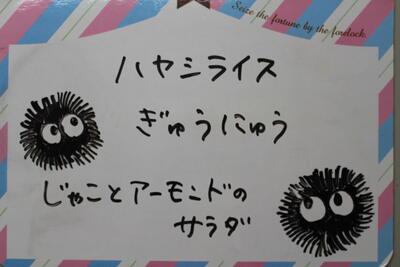 Seize the fortune by the forelock.
ハヤシライス
ぎゅうにゅう
じゃことアーモンドの
サラダ